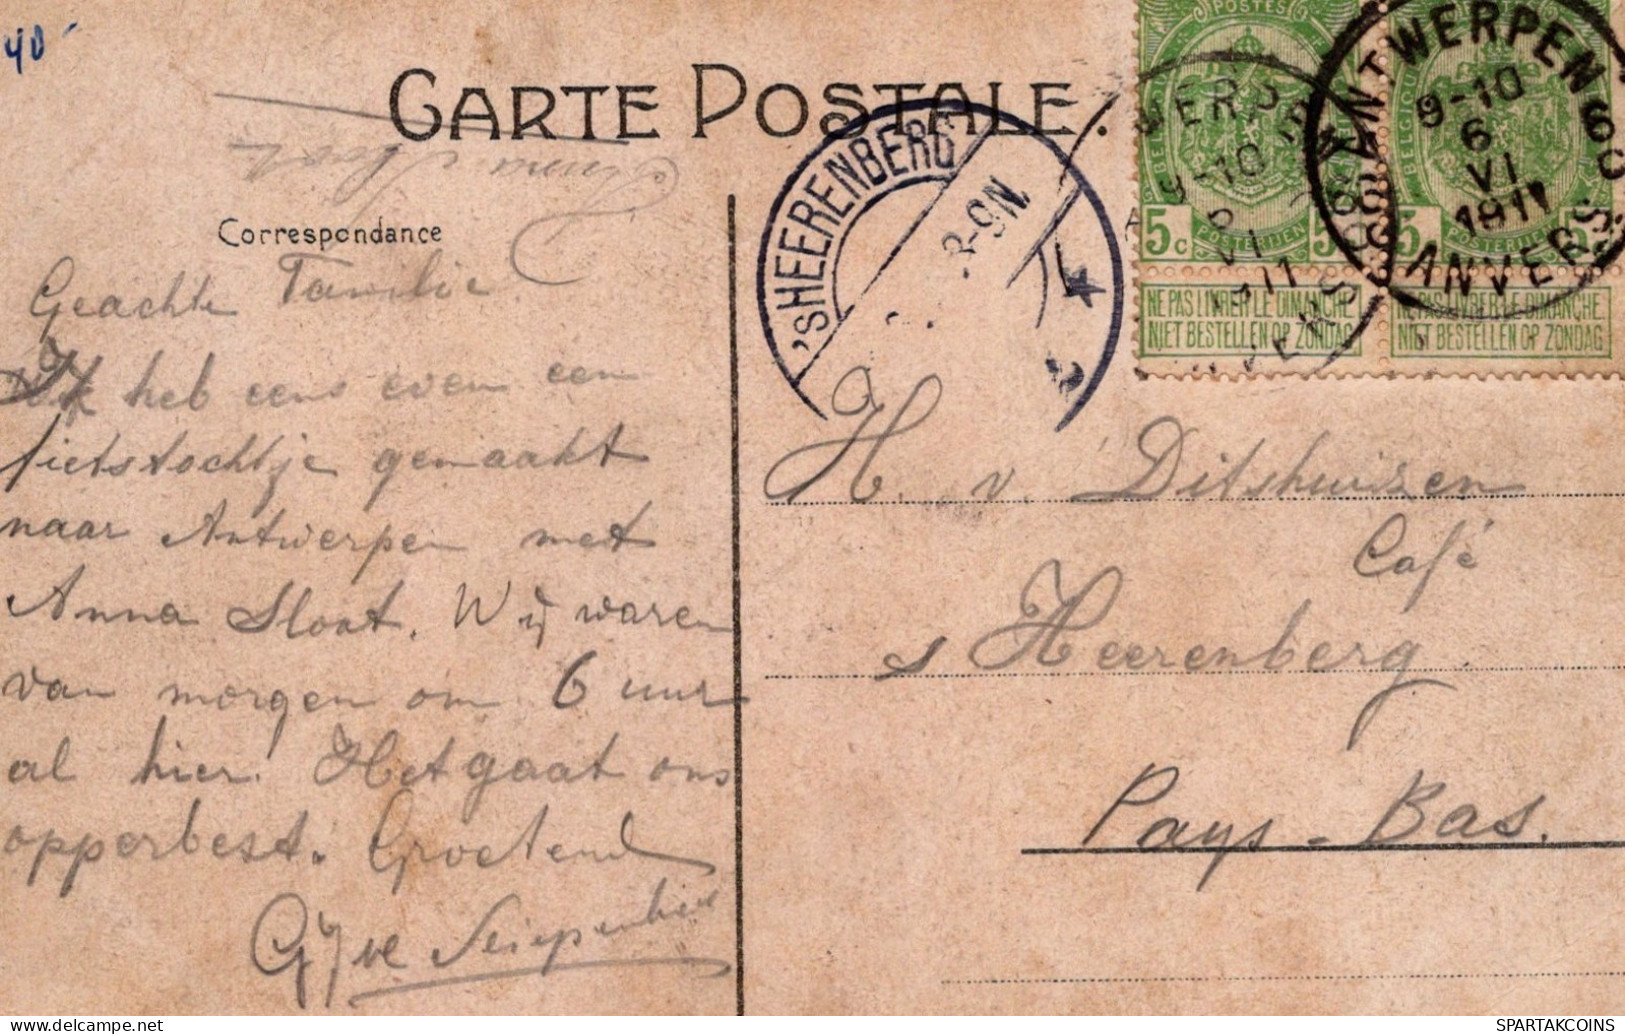 40
CARTE POSTALE.
Anna Sloot
Correspondance
Geachte Familie
Ik heb eens even een
fietstochtje gemaakt
naar Antwerpen met
Anna Sloot. Wij waren
van morgen om 6 uur
al hier. Het gaat ons
opperbest. Groetend
'sHEERENBERG
8-9N
POSTES
BELGIQUE
5c 5
POSTERIJEN
NE PAS LIVRER LE DIMANCHE
NIET BESTELLEN OP ZONDAG
POSTES
BELGIQUE
5 5
POSTERIJEN
NE PAS LIVRER LE DIMANCHE
NIET BESTELLEN OP ZONDAG
WERPEN
9-10
6
VI
1911
ANTWERPEN 6
9-10
6
VI
1911
ANVERS
H. v. Ditshuizen
Café
s Heerenberg.
Pays-Bas.
SPARTAKCOINS
SPARTAKCOINS.COM